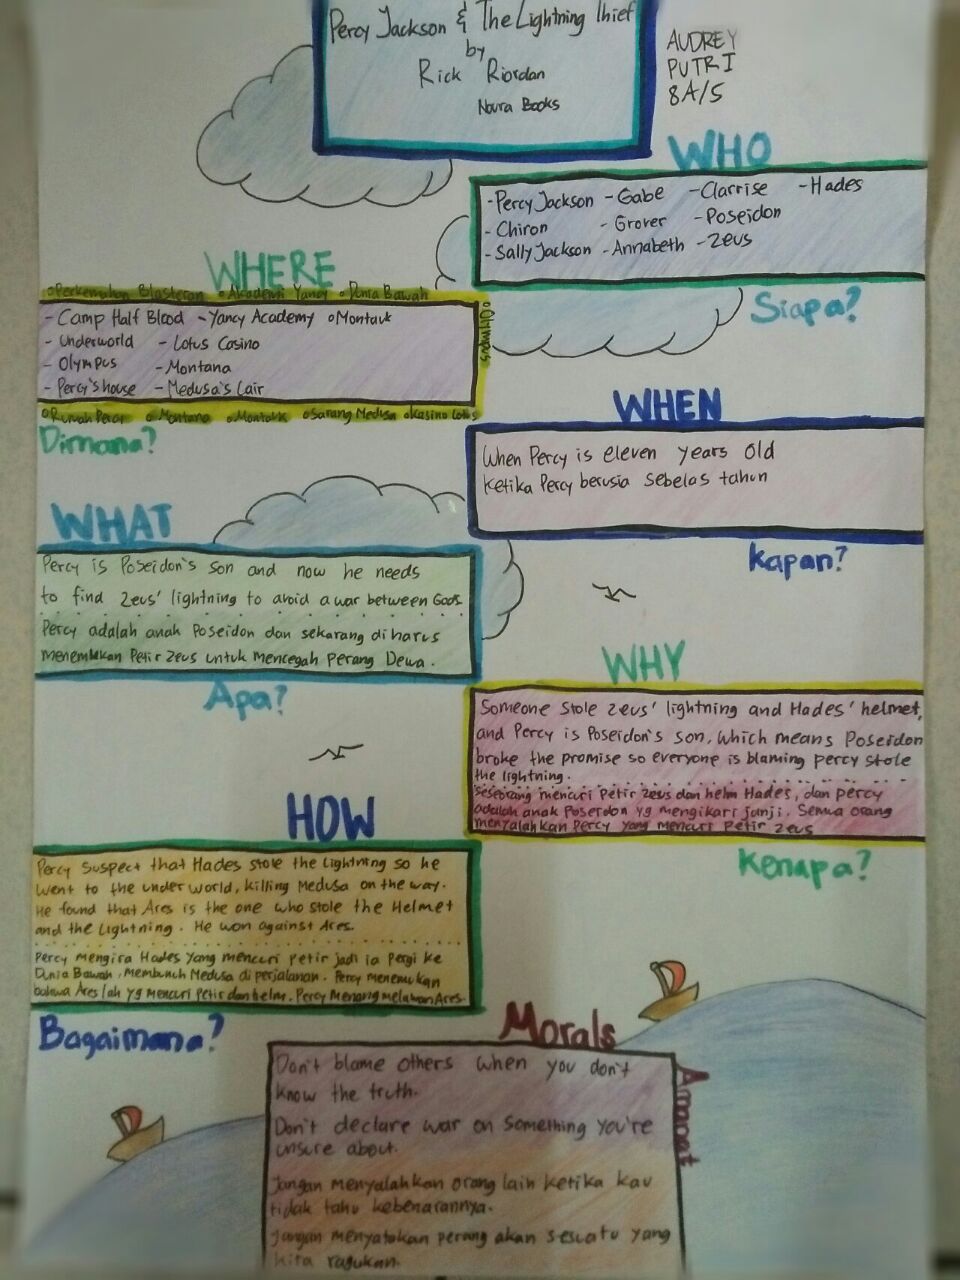 Percy Jackson & The Lightning Thief
by
Rick Riordan
Noura Books
AUDREY
PUTRI
8A/5
WHO
- Percy Jackson - Gabe - Clarrise - Hades
- Chiron - Grover - Poseidon
- Sally Jackson - Annabeth - Zeus
Siapa?
WHERE
Perkemahan Blasteran Akademi Yancy Dunia Bawah
- Camp Half Blood - Yancy Academy Montauk
- Underworld - Lotus Casino
- Olympus - Montana
- Percy's house - Medusa's Lair
Olimpus
Rumah Percy Montana Montauk Sarang Medusa Kasino Lotus
Dimana?
WHEN
When Percy is eleven years old
ketika Percy berusia sebelas tahun
Kapan?
WHAT
Percy is Poseidon's son and now he needs
to find Zeus' lightning to avoid a war between Gods.
Percy adalah anak Poseidon dan sekarang diharus
menemukan Petir Zeus untuk mencegah perang Dewa.
Apa?
WHY
Someone stole Zeus' lightning and Hades' helmet,
and Percy is Poseidon's son, which means Poseidon
broke the promise so everyone is blaming percy stole
the lightning.
Seseorang mencuri Petir Zeus dan helm Hades, dan percy
adalah anak Poseidon yg mengikari janji. Semua orang
menyalahkan Percy yang mencuri Petir Zeus
Kenapa?
HOW
Percy suspect that Hades stole the lightning so he
went to the underworld, killing Medusa on the way.
He found that Ares is the one who stole the Helmet
and the Lightning. He won against Ares.
Percy mengira Hades yang mencuri petir jadi ia pergi ke
Dunia Bawah, Membunuh Medusa di perjalanan. Percy menemukan
bahwa Ares lah yg mencuri Petir dan helm. Percy Menang melawan Ares.
Bagaimana?
Morals
Don't blame others when you don't
know the truth.
Don't declare war on something you're
unsure about.
Jangan menyalahkan orang lain ketika kau
tidak tahu kebenarannya.
Jangan menyatakan perang akan sesuatu yang
kita ragukan.
Amanat